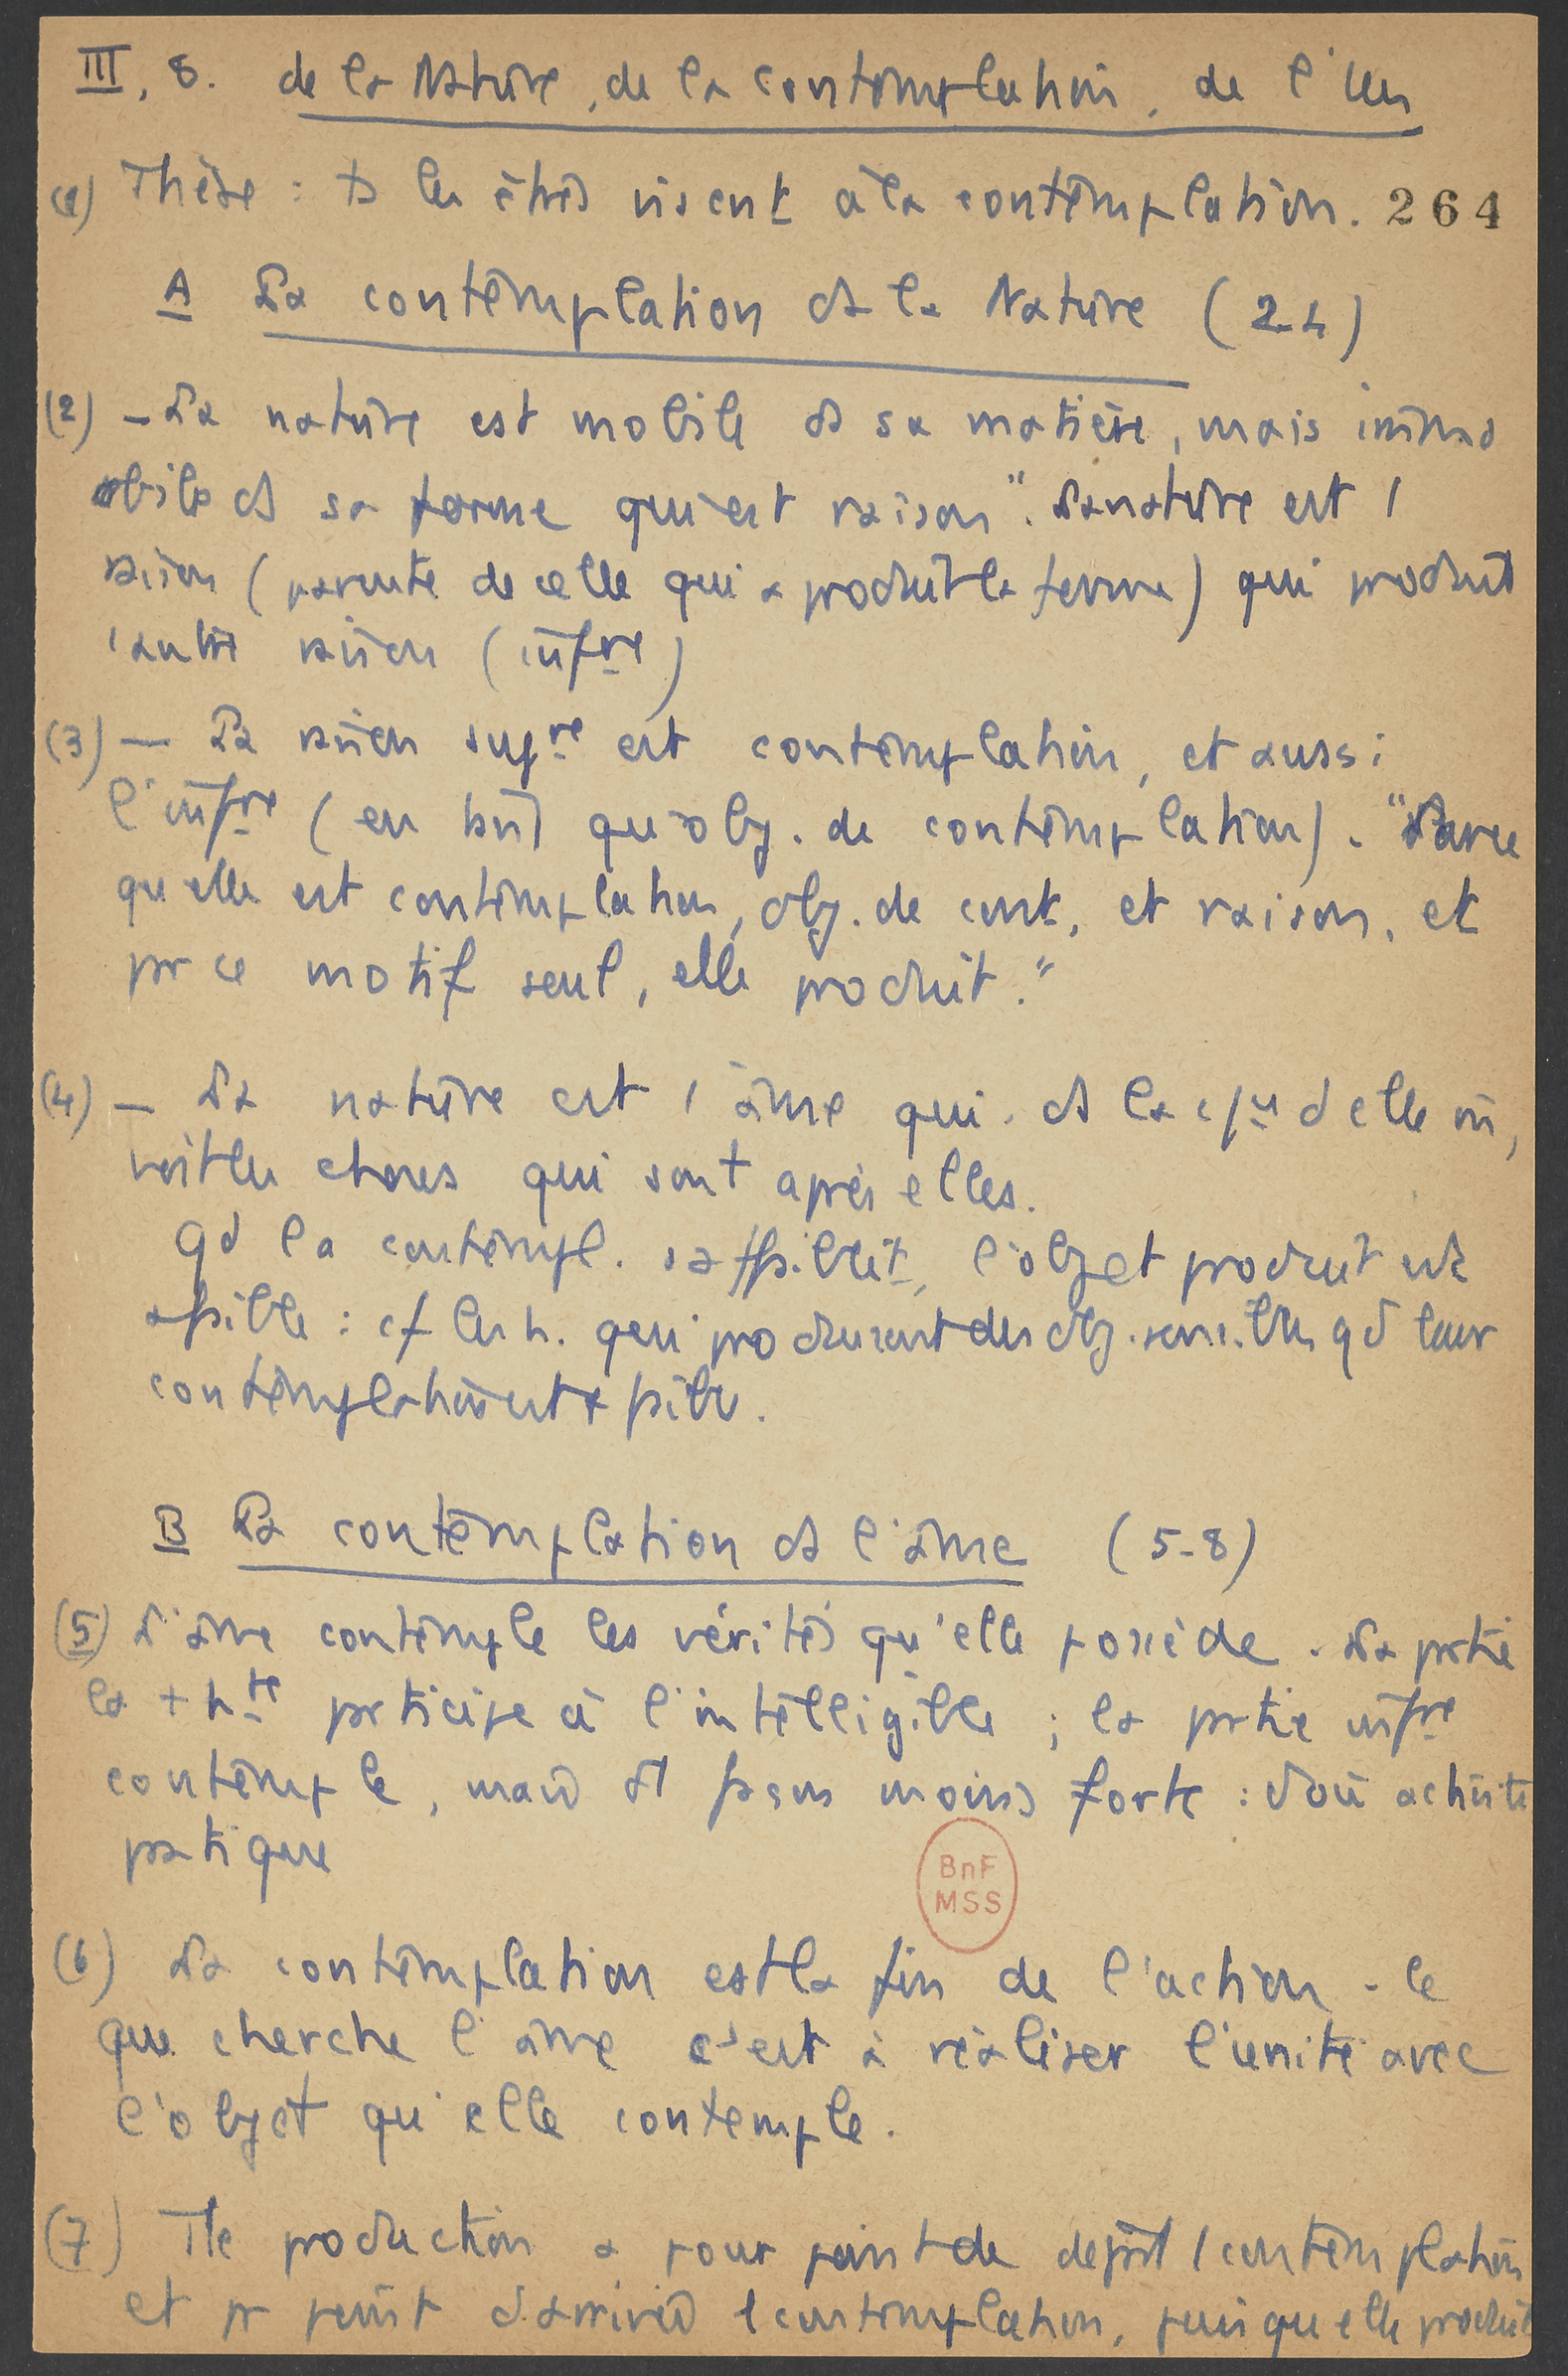 III, 8. de la Nature, de la contemplation, de l'Un
(1) Thèse : ts les êtres visent à la contemplation. 264
A La contemplation ds la Nature (2-4)
(2) - La nature est mobile ds sa matière, mais immo
bile ds sa forme qui est raison". La nature est 1
raison (parente de celle qui a produit la forme) qui produit
1 autre raison (infre)
(3) - La raison supre est contemplation, et aussi
l'infre (en tant qu'obj. de contemplation). "Parce
qu'elle est contemplation, obj. de cont, et raison, et
pr ce motif seul, elle produit."
(4) - La nature est 1 âme qui, ds la d'elle m,
voit les choses qui sont après elles.
Qd la contempl. s'affaiblit, l'objet produit est
affaibli : cf les h. qui produisent des obj. sensibles qd leur
contemplation est faible.
B La contemplation ds l'âme (5-8)
(5) L'âme contemple les vérités qu'elle possède. La prtie
la + hte prticipe à l'intelligible ; la prtie infre
contemple, mais d'1 façon moins forte : d'où activité
pratique
(6) La contemplation est la fin de l'action - Ce
que cherche l'âme c'est à réaliser l'unité avec
l'objet qu'elle contemple.
BnF
MSS
(7) Tte production a pour point de déprt 1 contemplation
et pr point d'arrivée 1 contemplation, puisqu'elle produit